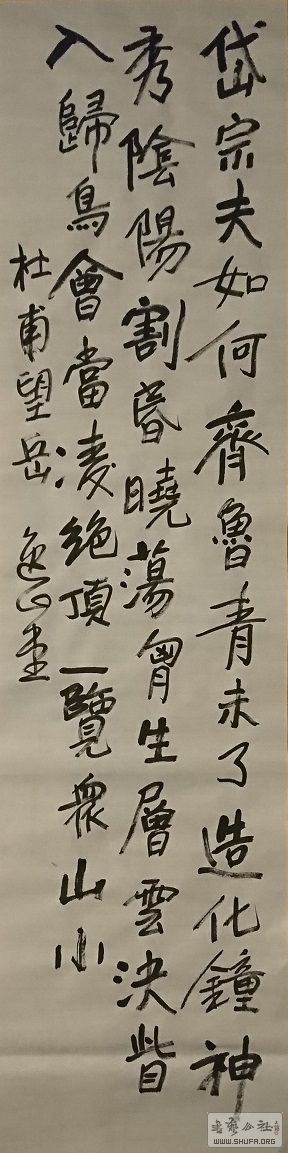 岱宗夫如何齊魯青未了造化鐘神
秀陰陽割昏曉蕩胷生層雲決眥
入歸鳥會當凌絕頂一覽衆山小
杜甫望岳 逸心堂
WWW.SHUFA.ORG